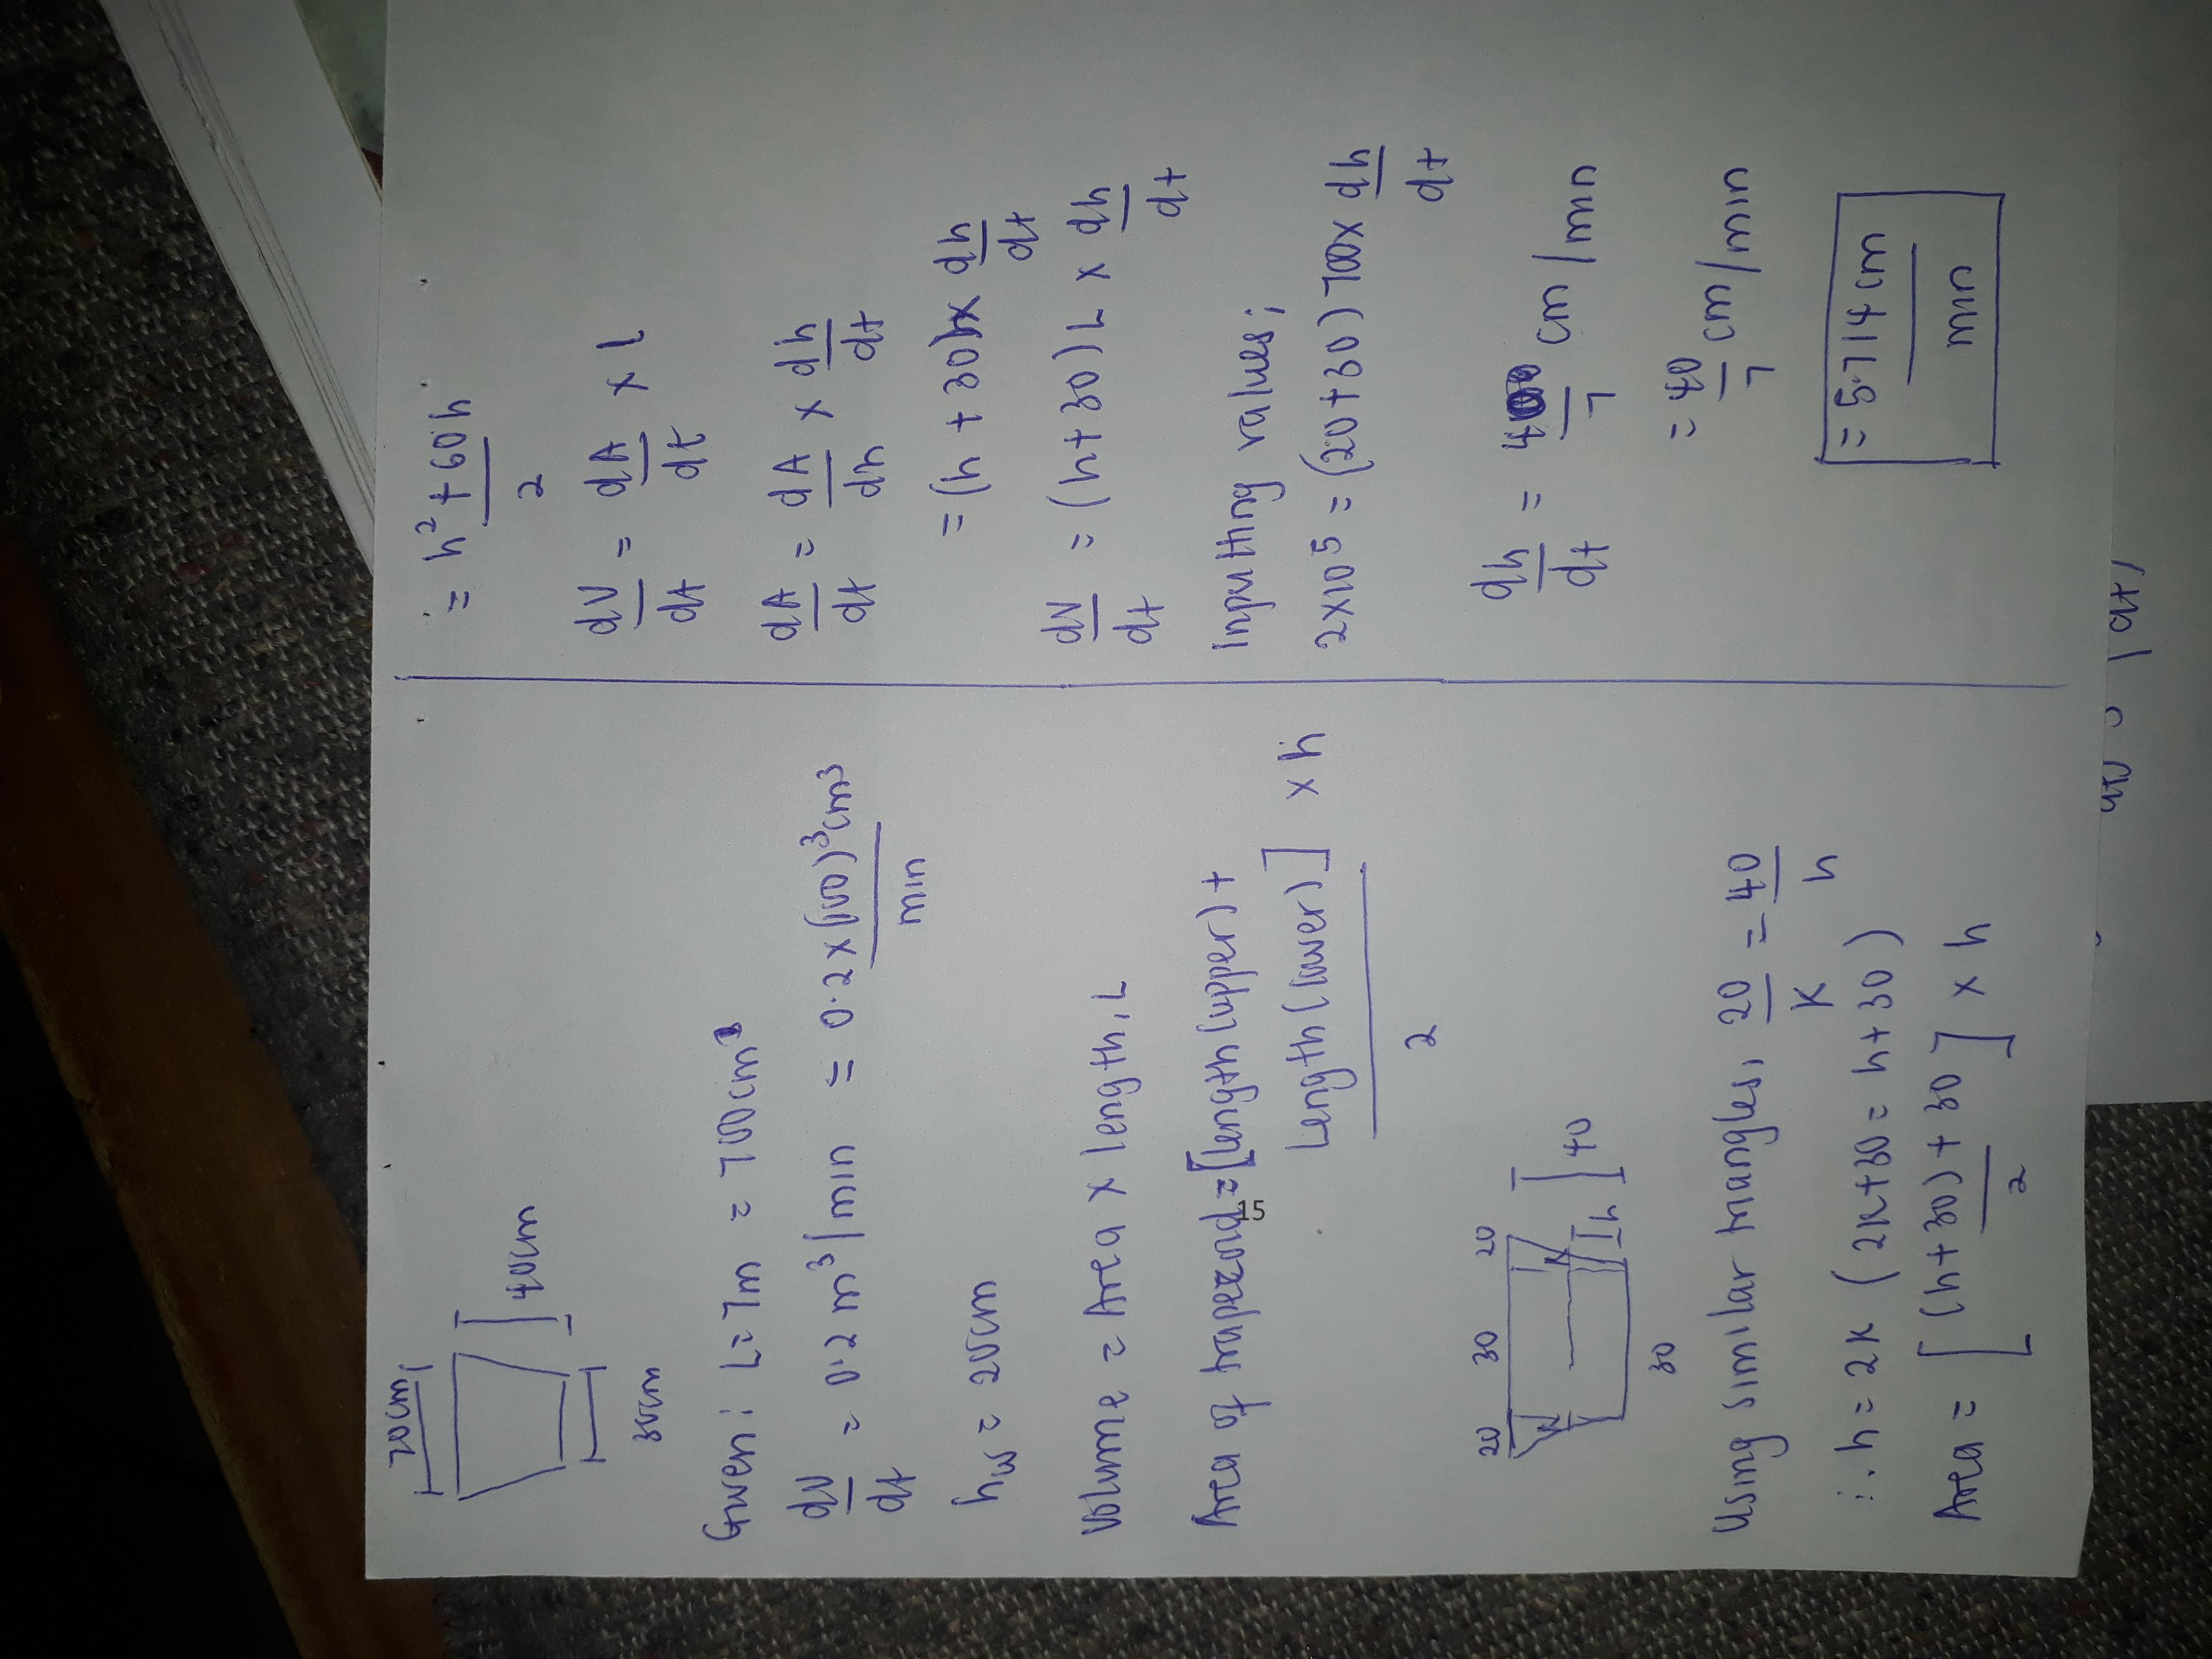 70cm
40cm
30cm
Given: L = 7m = 700cm
dV/dt = 0.2 m³/min = 0.2 x (100)³ cm³/min
hw = 20cm
Volume = Area x length, L
Area of trapezoid = [length (upper) +
Length (lower)]/2 x h
20 30 20
40
h
30
Using similar triangles, 20/K = 40/h
∴ h = 2K (2K+30 = h+30)
Area = [(h+30) + 30/2] x h
= h² + 60h/2
dV/dt = dA/dt x L
dA/dt = dA/dh x dh/dt
= (h + 30) x dh/dt
dV/dt = (h+30) L x dh/dt
Inputting values;
2x10 5 = (20+30) 700 x dh/dt
dh/dt = 40/7 cm/min
= 40/7 cm/min
= 5.714 cm/min
15